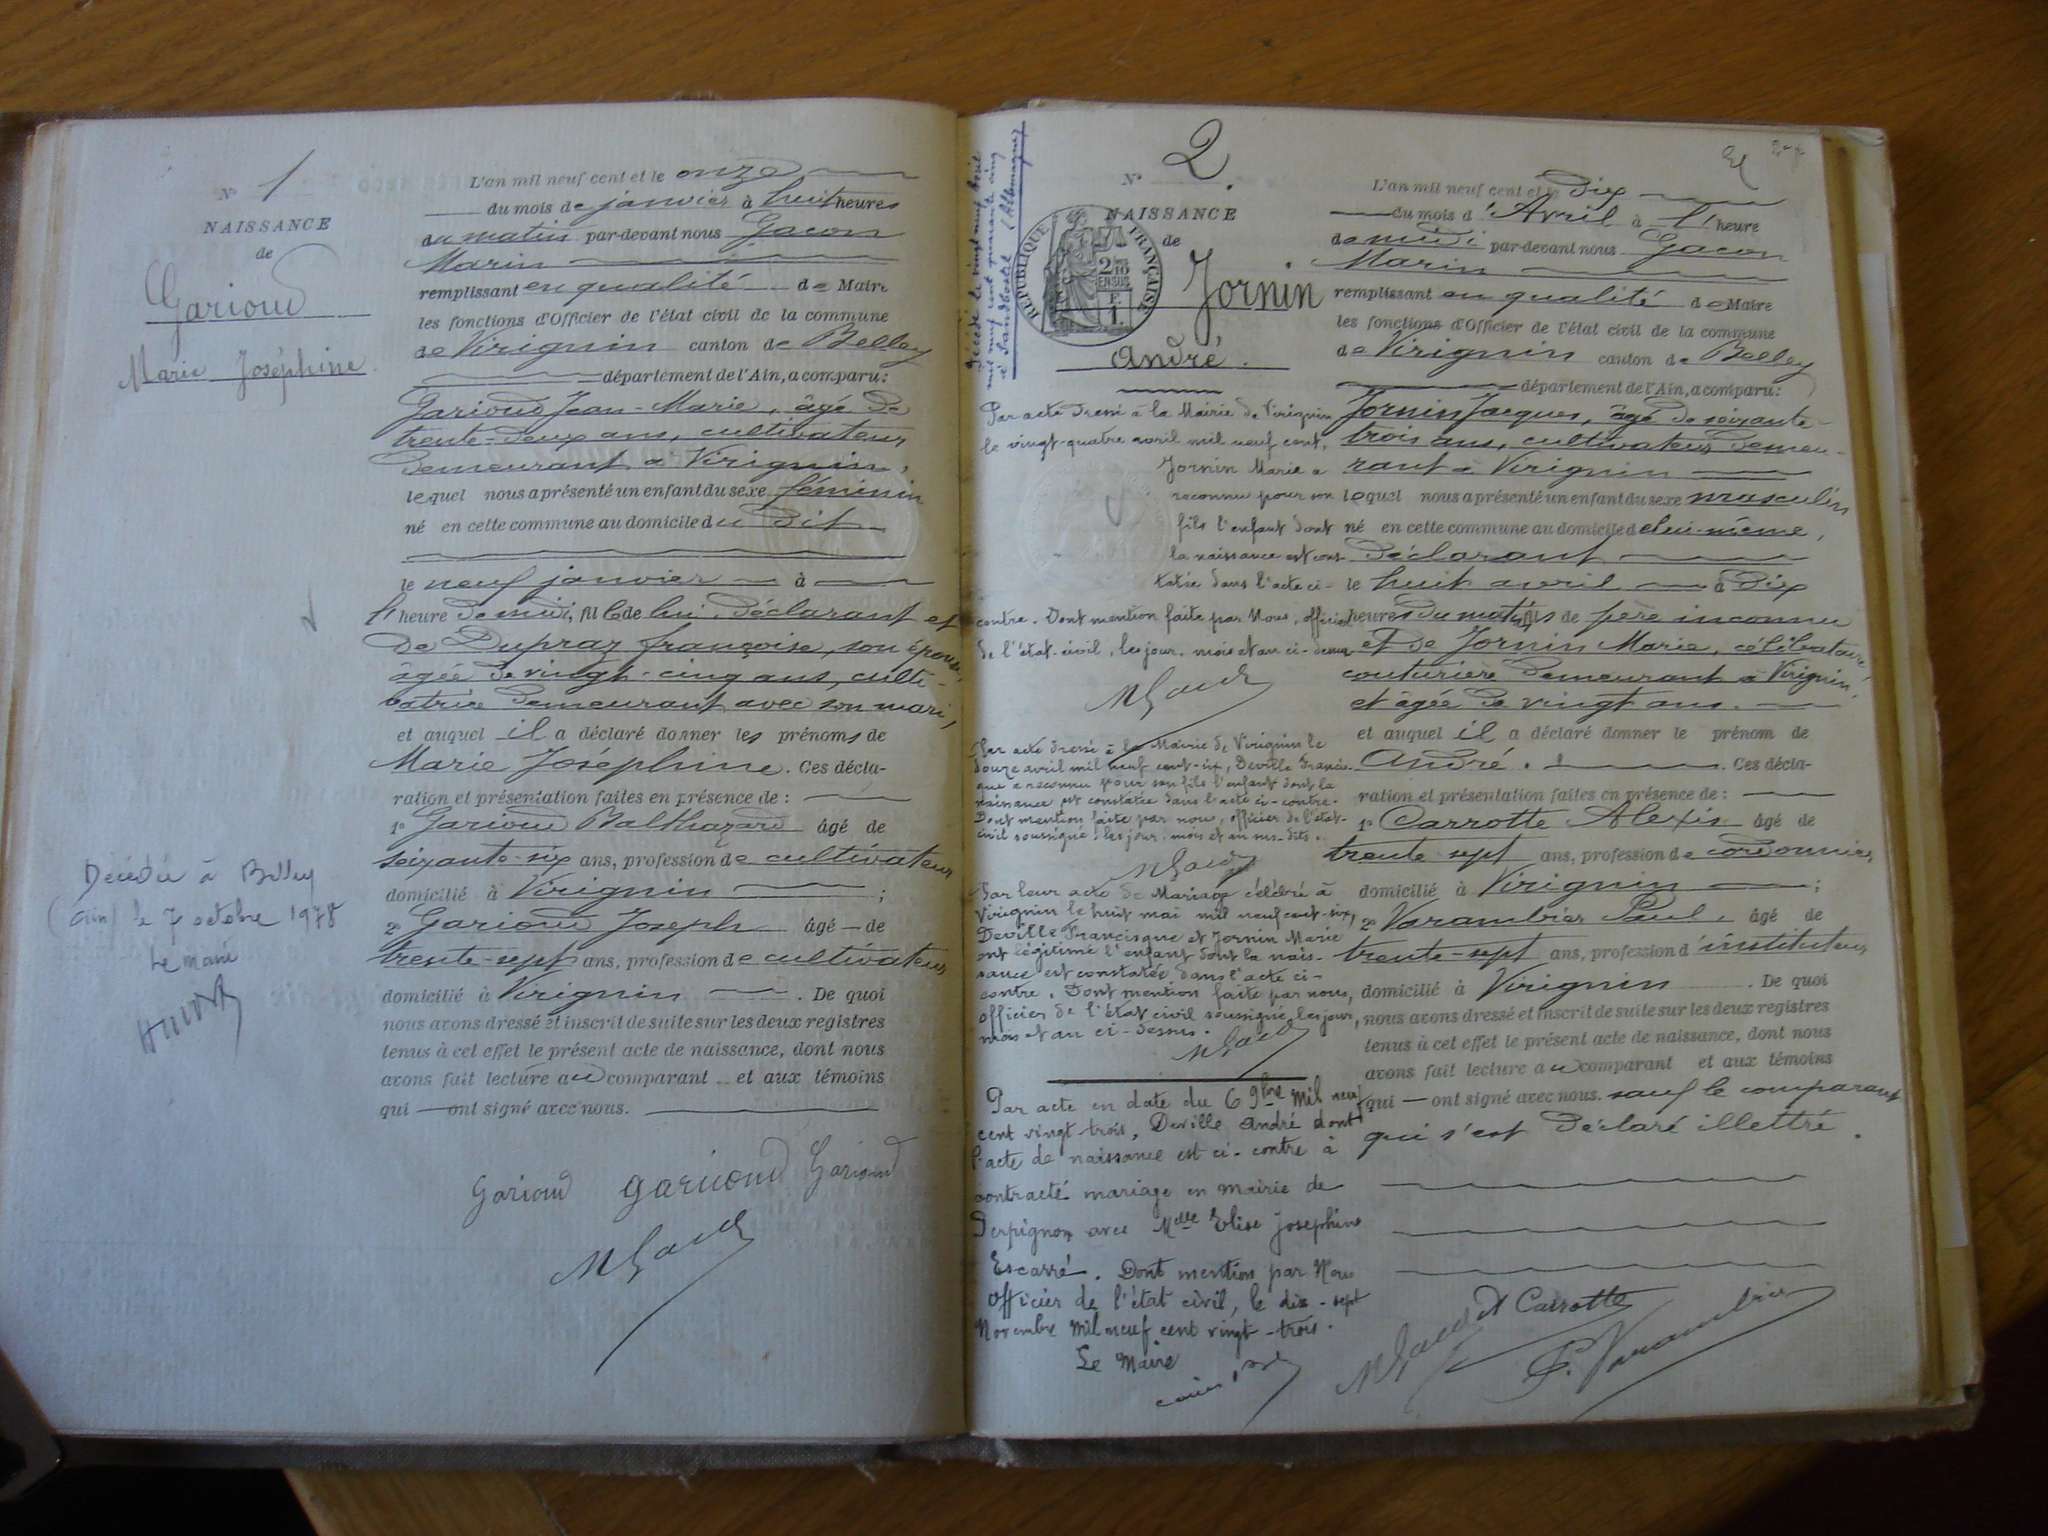 N° 1
NAISSANCE
de
Garioud
Marie Joséphine.
Décédée à Belley
(Ain) le 7 octobre 1978
Le maire
L'an mil neuf cent et le onze
du mois de janvier à huit heures
du matin par-devant nous Gacon
Marin
remplissant en qualité de Maire
les fonctions d'Officier de l'état civil de la commune
de Virignin canton de Belley
département de l'Ain, a comparu:
Garioud Jean-Marie, âgé de
trente-deux ans, cultivateur
demeurant à Virignin,
lequel nous a présenté un enfant du sexe féminin
né en cette commune au domicile du dit
le neuf janvier à
l' heure de midi, fille de lui, déclarant et
de Dupraz françoise, son épouse,
âgée de vingt-cinq ans, culti-
vatrice demeurant avec son mari,
et auquel il a déclaré donner les prénoms de
Marie Joséphine. Ces décla-
ration et présentation faites en présence de :
1° Garioud Balthazard âgé de
soixante-six ans, profession de cultivateur
domicilié à Virignin ;
2° Garioud Joseph âgé de
trente-sept ans, profession de cultivateur
domicilié à Virignin. De quoi
nous avons dressé et inscrit de suite sur les deux registres
tenus à cet effet le présent acte de naissance, dont nous
avons fait lecture au comparant et aux témoins
qui ont signé avec nous.
Garioud garioud Garioud
décédé le vingt neuf avril
mil neuf cent quarante cinq
à Sandbostel (Allemagne)
N° 2.
NAISSANCE
de
RÉPUBLIQUE FRANÇAISE
Jornin
André.
Par acte dressé à la Mairie de Virignin
le vingt-quatre avril mil neuf cent,
Jornin Marie a
reconnu pour son
fils l'enfant dont
la naissance est cons-
tatée dans l'acte ci-
contre. Dont mention faite par Nous, officier
de l'état-civil, les jour, mois et an ci-dessus
Par acte dressé à la Mairie de Virignin le
douze avril mil neuf cent-six, Deville Francis-
que a reconnu pour son fils l'enfant dont la
naissance est constatée dans l'acte ci-contre.
Dont mention faite par nous, officier de l'état-
civil soussigné, les jour, mois et an sus-dits.
Par leur acte de Mariage célébré à
Virignin le huit mai mil neuf cent-six,
Deville Francisque et Jornin Marie
ont légitimé l'enfant dont la nais-
sance est constatée dans l'acte ci-
contre. Dont mention faite par nous,
officier de l'état civil soussigné, les jour,
mois et an ci-dessus.
Par acte en date du 6 9bre mil neuf
cent vingt-trois, Deville André dont
l'acte de naissance est ci-contre à
contracté mariage en mairie de
Perpignan avec Melle Elise Josephine
Escarré. Dont mention par Nous
officier de l'état civil, le dix-sept
Novembre mil neuf cent vingt-trois.
Le Maire
L'an mil neuf cent et le dix
du mois d'Avril à l' heure
de midi par-devant nous Gacon
Marin
remplissant en qualité de Maire
les fonctions d'Officier de l'état civil de la commune
de Virignin canton de Belley
département de l'Ain, a comparu:
Jornin Jacques, âgé de soixante-
trois ans, cultivateur demeu-
rant à Virignin
lequel nous a présenté un enfant du sexe masculin
né en cette commune au domicile de lui-même,
déclarant
le huit avril à dix
heures du matin, fils de père inconnu
et de Jornin Marie, célibataire
couturière demeurant à Virignin,
et âgée de vingt ans.
et auquel il a déclaré donner le prénom de
André. Ces décla-
ration et présentation faites en présence de :
1° Carrotte Alexis âgé de
trente-sept ans, profession de cordonnier
domicilié à Virignin ;
2° Varambier Paul, âgé de
trente-sept ans, profession d'instituteur
domicilié à Virignin. De quoi
nous avons dressé et inscrit de suite sur les deux registres
tenus à cet effet le présent acte de naissance, dont nous
avons fait lecture au comparant et aux témoins
qui ont signé avec nous. sauf le comparant
qui s'est déclaré illettré.
A Carrotte
P. Varambier